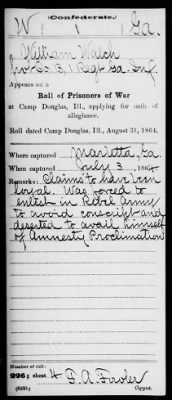 (Confederate.)
W 1 Ga.
William Walch
Co. B, 1 Regt Ga. Inf.
Appears on a
Roll of Prisoners of War
at Camp Douglas, Ill., applying for oath of
allegiance.
Roll dated Camp Douglas, Ill., August 31, 1864.
Where captured Marietta, Ga
When captured July 3, 1864
Remarks: Claims to have been
loyal. Was forced to
enlist in Rebel Army
to avoid conscript and
deserted to avail himself
of Amnesty Proclamation
Number of roll:
226; sheet 4
Copyist.